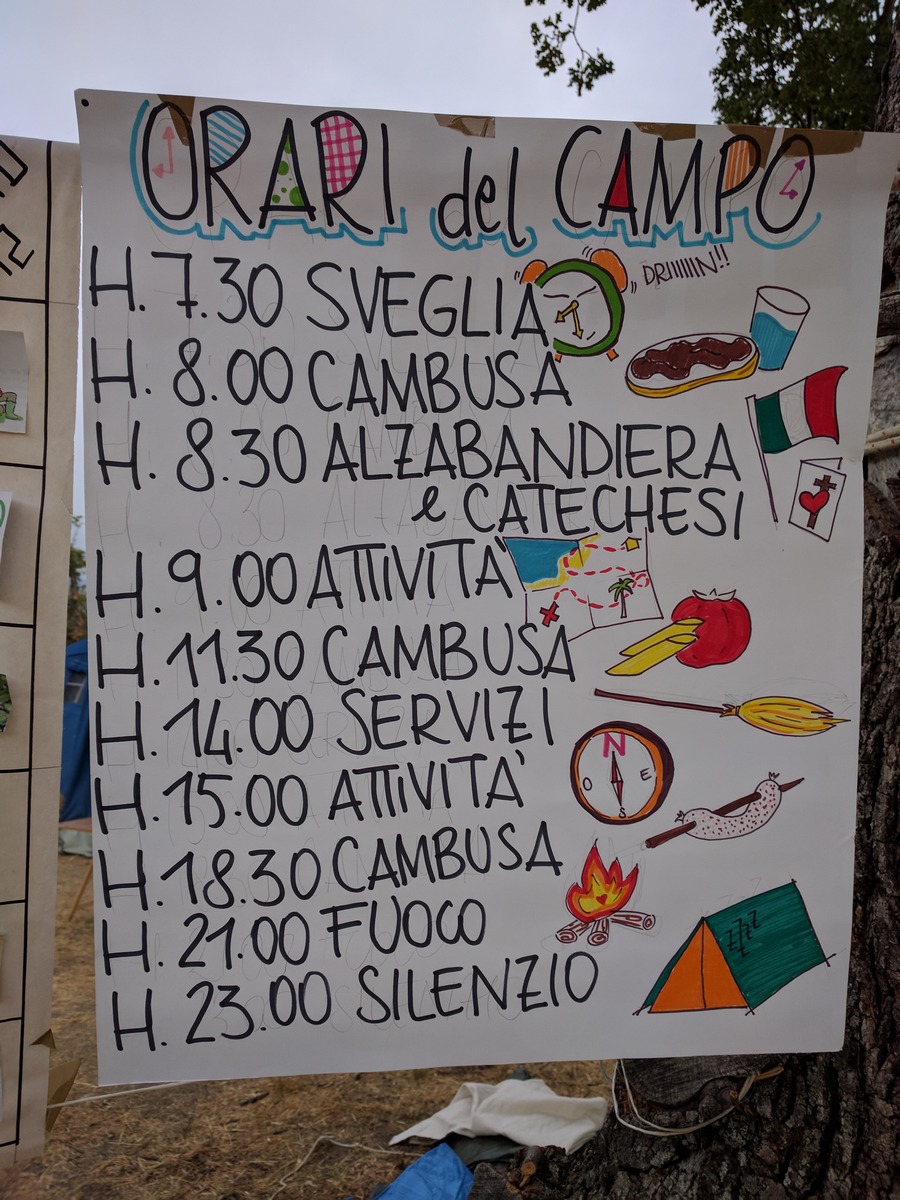 ORARI del CAMPO
H. 7.30 SVEGLIA
DRIIIIIIN!!
H. 8.00 CAMBUSA
H. 8.30 ALZABANDIERA
e CATECHESI
H. 9.00 ATTIVITÀ
H. 11.30 CAMBUSA
H. 14.00 SERVIZI
H. 15.00 ATTIVITÀ
N
O E
S
H. 18.30 CAMBUSA
H. 21.00 FUOCO
zZzZ
H. 23.00 SILENZIO